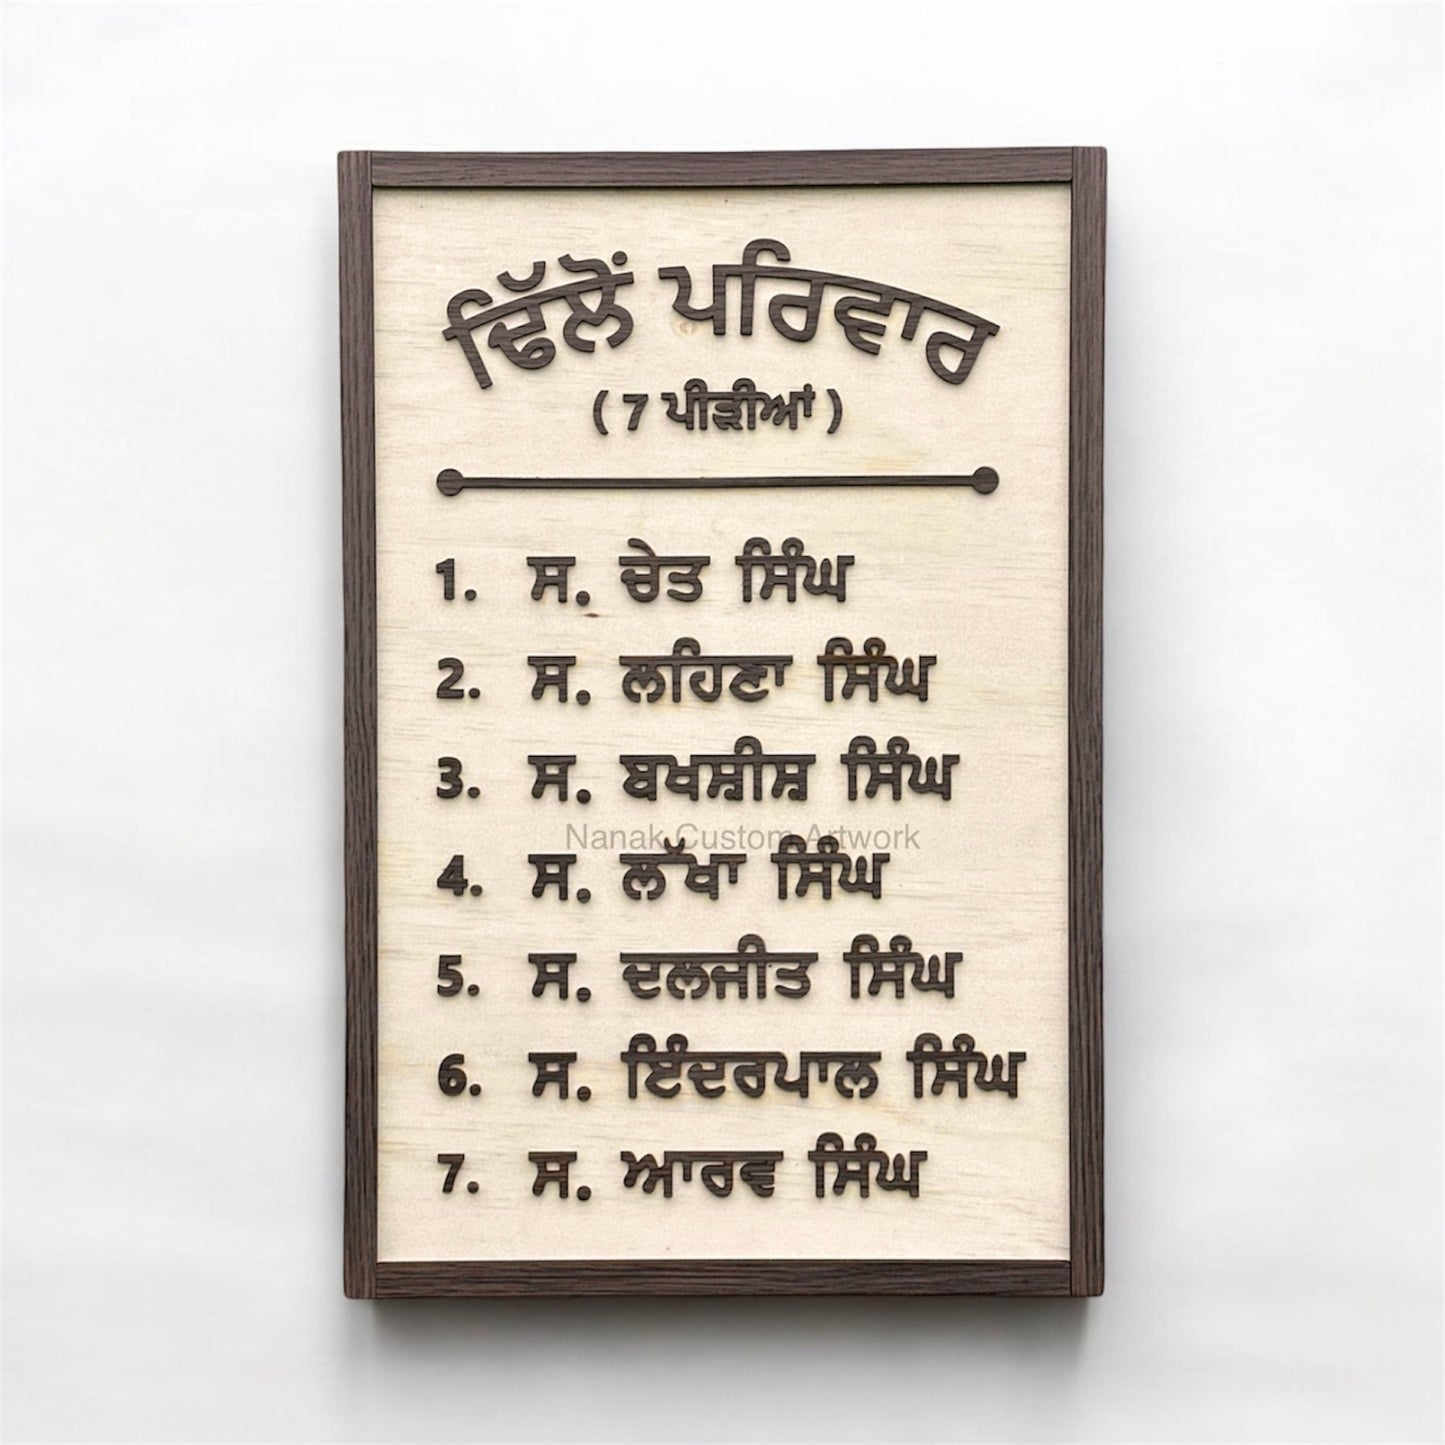 ਢਿੱਲੋਂ ਪਰਿਵਾਰ
( 7 ਪੀੜੀਆਂ )
1. ਸ. ਚੇਤ ਸਿੰਘ
2. ਸ. ਲਹਿਣਾ ਸਿੰਘ
3. ਸ. ਬਖਸ਼ੀਸ਼ ਸਿੰਘ
Nanak Custom Artwork
4. ਸ. ਲੱਖਾ ਸਿੰਘ
5. ਸ. ਦਲਜੀਤ ਸਿੰਘ
6. ਸ. ਇੰਦਰਪਾਲ ਸਿੰਘ
7. ਸ. ਆਰਵ ਸਿੰਘ